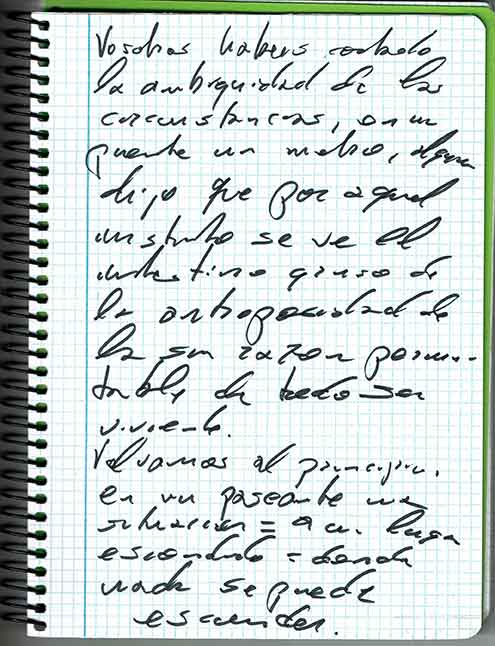 Vosotros habeis contado
la ambiguidad de las
circunstancias, en un
puente un metro, alguien
dijo que por aquel
instituto se ve el
intestino grueso de
la de
la sin razon permu-
table de todo ser
viviente.
Volvamos al principio.
en un paseante una
situacion = a un lugar
escondido = donde
nada se puede
esconder.